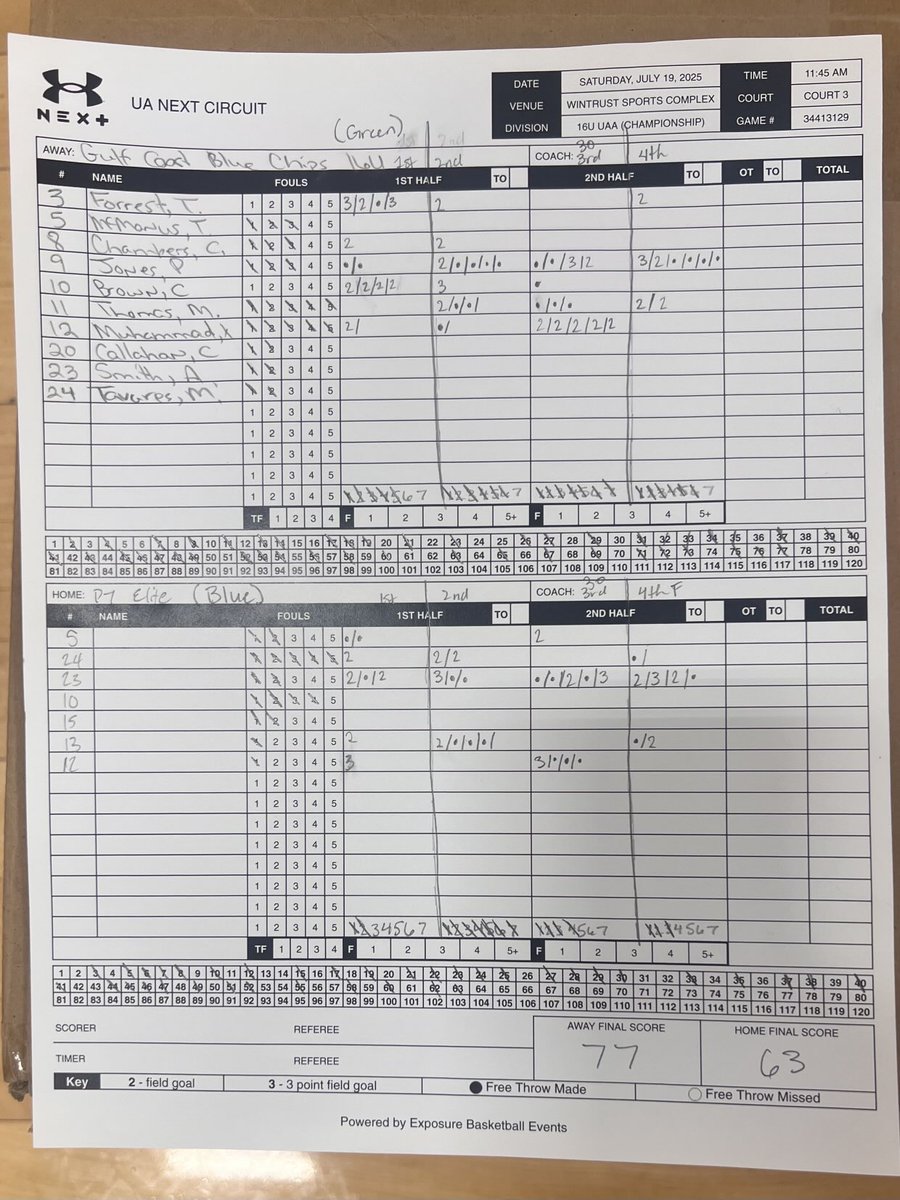 NEXT
UA NEXT CIRCUIT
DATE SATURDAY, JULY 19, 2025 TIME 11:45 AM
VENUE WINTRUST SPORTS COMPLEX COURT COURT 3
DIVISION 16U UAA (CHAMPIONSHIP) GAME # 34413129
(Green)
AWAY: Gulf Coast Blue Chips 1st 2nd COACH: 30 3rd 4th
# NAME FOULS 1ST HALF TO 2ND HALF TO OT TO TOTAL
3 Forrest, T. 1 2 3 4 5 3/2/•/3 2 2
5 McManus, T. 1 2 3 4 5
8 Chambers, C. 1 2 3 4 5 2 2
9 Jones, P 1 2 3 4 5 •/• 2/•/•/•/• •/•/3/2 3/2/•/•/•/•
10 Brown, C 1 2 3 4 5 2/2/2/2 3 •
11 Thomas, M. 1 2 3 4 5 2/•/•/ •/•/• 2/2
12 Muhammad, X 1 2 3 4 5 2/ •/ 2/2/2/2/2
20 Callahan, C 1 2 3 4 5
23 Smith, A 1 2 3 4 5
24 Tavares, M. 1 2 3 4 5
1 2 3 4 5
1 2 3 4 5
1 2 3 4 5
1 2 3 4 5
1 2 3 4 5 1 2 3 4 5 6 7 1 2 3 4 5 6 7 1 2 3 4 5 6 7 1 2 3 4 5 6 7
TF 1 2 3 4 F 1 2 3 4 5+ F 1 2 3 4 5+
1 2 3 4 5 6 7 8 9 10 11 12 13 14 15 16 17 18 19 20 21 22 23 24 25 26 27 28 29 30 31 32 33 34 35 36 37 38 39 40
41 42 43 44 45 46 47 48 49 50 51 52 53 54 55 56 57 58 59 60 61 62 63 64 65 66 67 68 69 70 71 72 73 74 75 76 77 78 79 80
81 82 83 84 85 86 87 88 89 90 91 92 93 94 95 96 97 98 99 100 101 102 103 104 105 106 107 108 109 110 111 112 113 114 115 116 117 118 119 120
HOME: P7 Elite (Blue) 1st 2nd COACH: 30 3rd 4th F
# NAME FOULS 1ST HALF TO 2ND HALF TO OT TO TOTAL
5 1 2 3 4 5 •/• 2
24 1 2 3 4 5 2 2/2 •/
23 1 2 3 4 5 2/•/2 3/•/• •/•/2/•/3 2/3/2/•
10 1 2 3 4 5
15 1 2 3 4 5
13 1 2 3 4 5 2 2/•/•/•/ •/2
12 1 2 3 4 5 3 3/•/•/•
1 2 3 4 5
1 2 3 4 5
1 2 3 4 5
1 2 3 4 5
1 2 3 4 5
1 2 3 4 5
1 2 3 4 5
1 2 3 4 5 1 2 3 4 5 6 7 1 2 3 4 5 6 7 1 2 3 4 5 6 7 1 2 3 4 5 6 7
TF 1 2 3 4 F 1 2 3 4 5+ F 1 2 3 4 5+
1 2 3 4 5 6 7 8 9 10 11 12 13 14 15 16 17 18 19 20 21 22 23 24 25 26 27 28 29 30 31 32 33 34 35 36 37 38 39 40
41 42 43 44 45 46 47 48 49 50 51 52 53 54 55 56 57 58 59 60 61 62 63 64 65 66 67 68 69 70 71 72 73 74 75 76 77 78 79 80
81 82 83 84 85 86 87 88 89 90 91 92 93 94 95 96 97 98 99 100 101 102 103 104 105 106 107 108 109 110 111 112 113 114 115 116 117 118 119 120
SCORER REFEREE AWAY FINAL SCORE HOME FINAL SCORE
TIMER REFEREE 77 63
Key 2 - field goal 3 - 3 point field goal Free Throw Made Free Throw Missed
Powered by Exposure Basketball Events